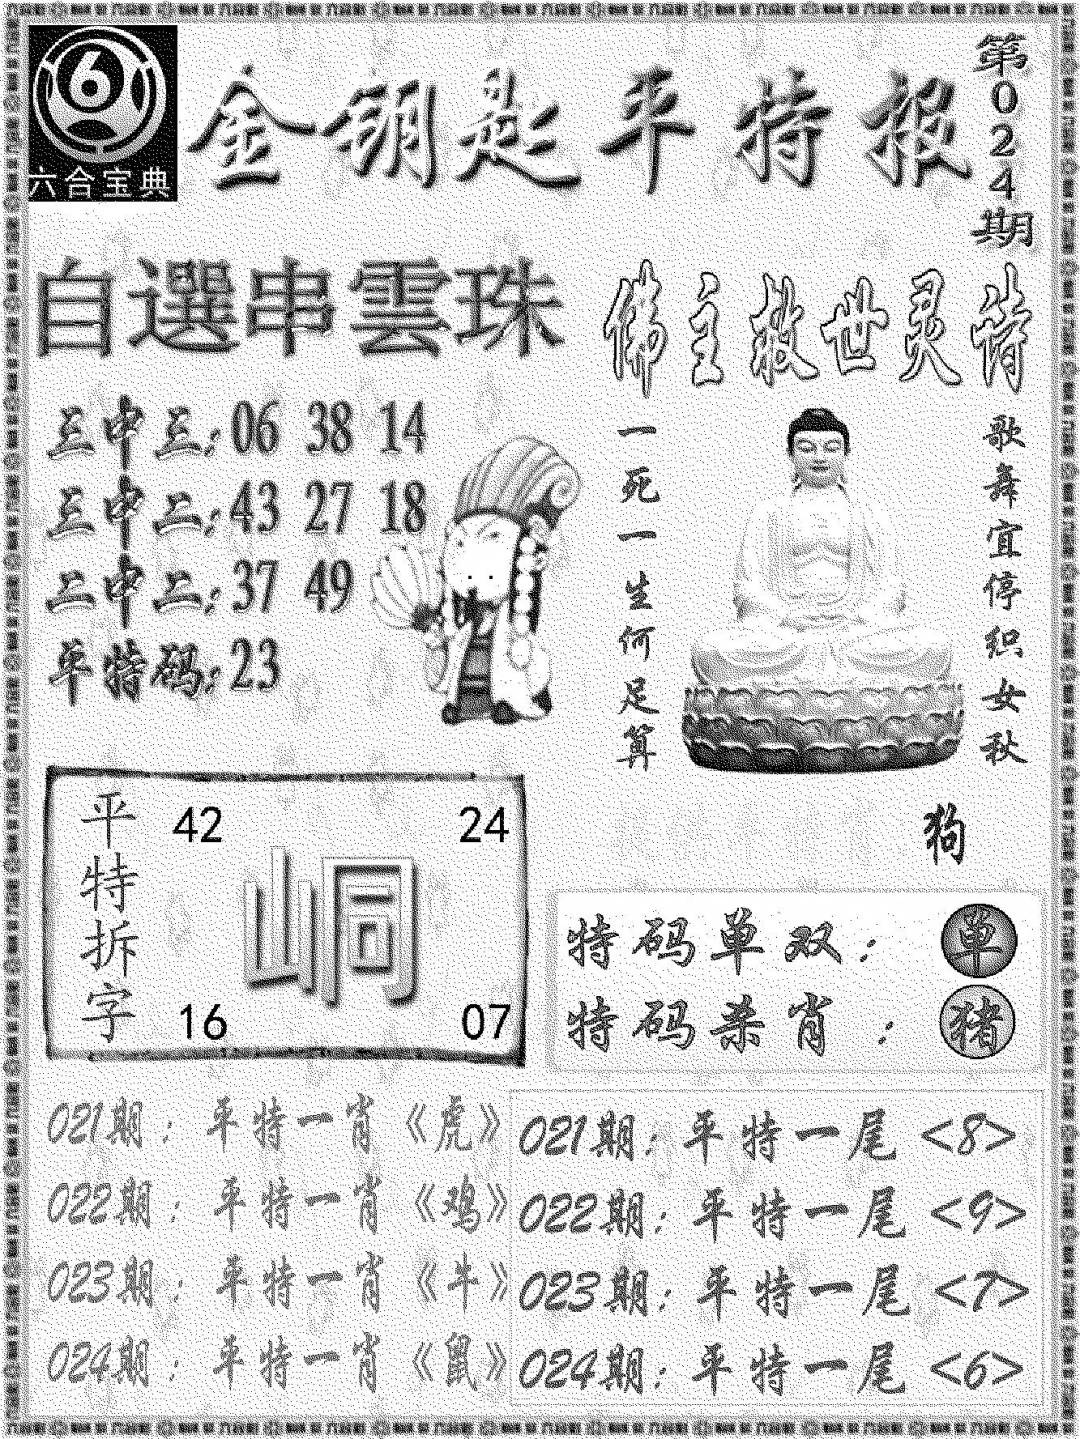 六合宝典
金钥匙平特报
第024期
自選串雲珠
三中三:06 38 14
三中二:43 27 18
二中二:37 49
平特码:23
佛主救世灵诗
歌舞宜停织女秋
一死一生何足算
狗
平特拆字
42 24
峒
16 07
特码单双: 单
特码杀肖: 猪
021期:平特一肖《虎》
022期:平特一肖《鸡》
023期:平特一肖《牛》
024期:平特一肖《鼠》
021期:平特一尾<8>
022期:平特一尾<9>
023期:平特一尾<7>
024期:平特一尾<6>